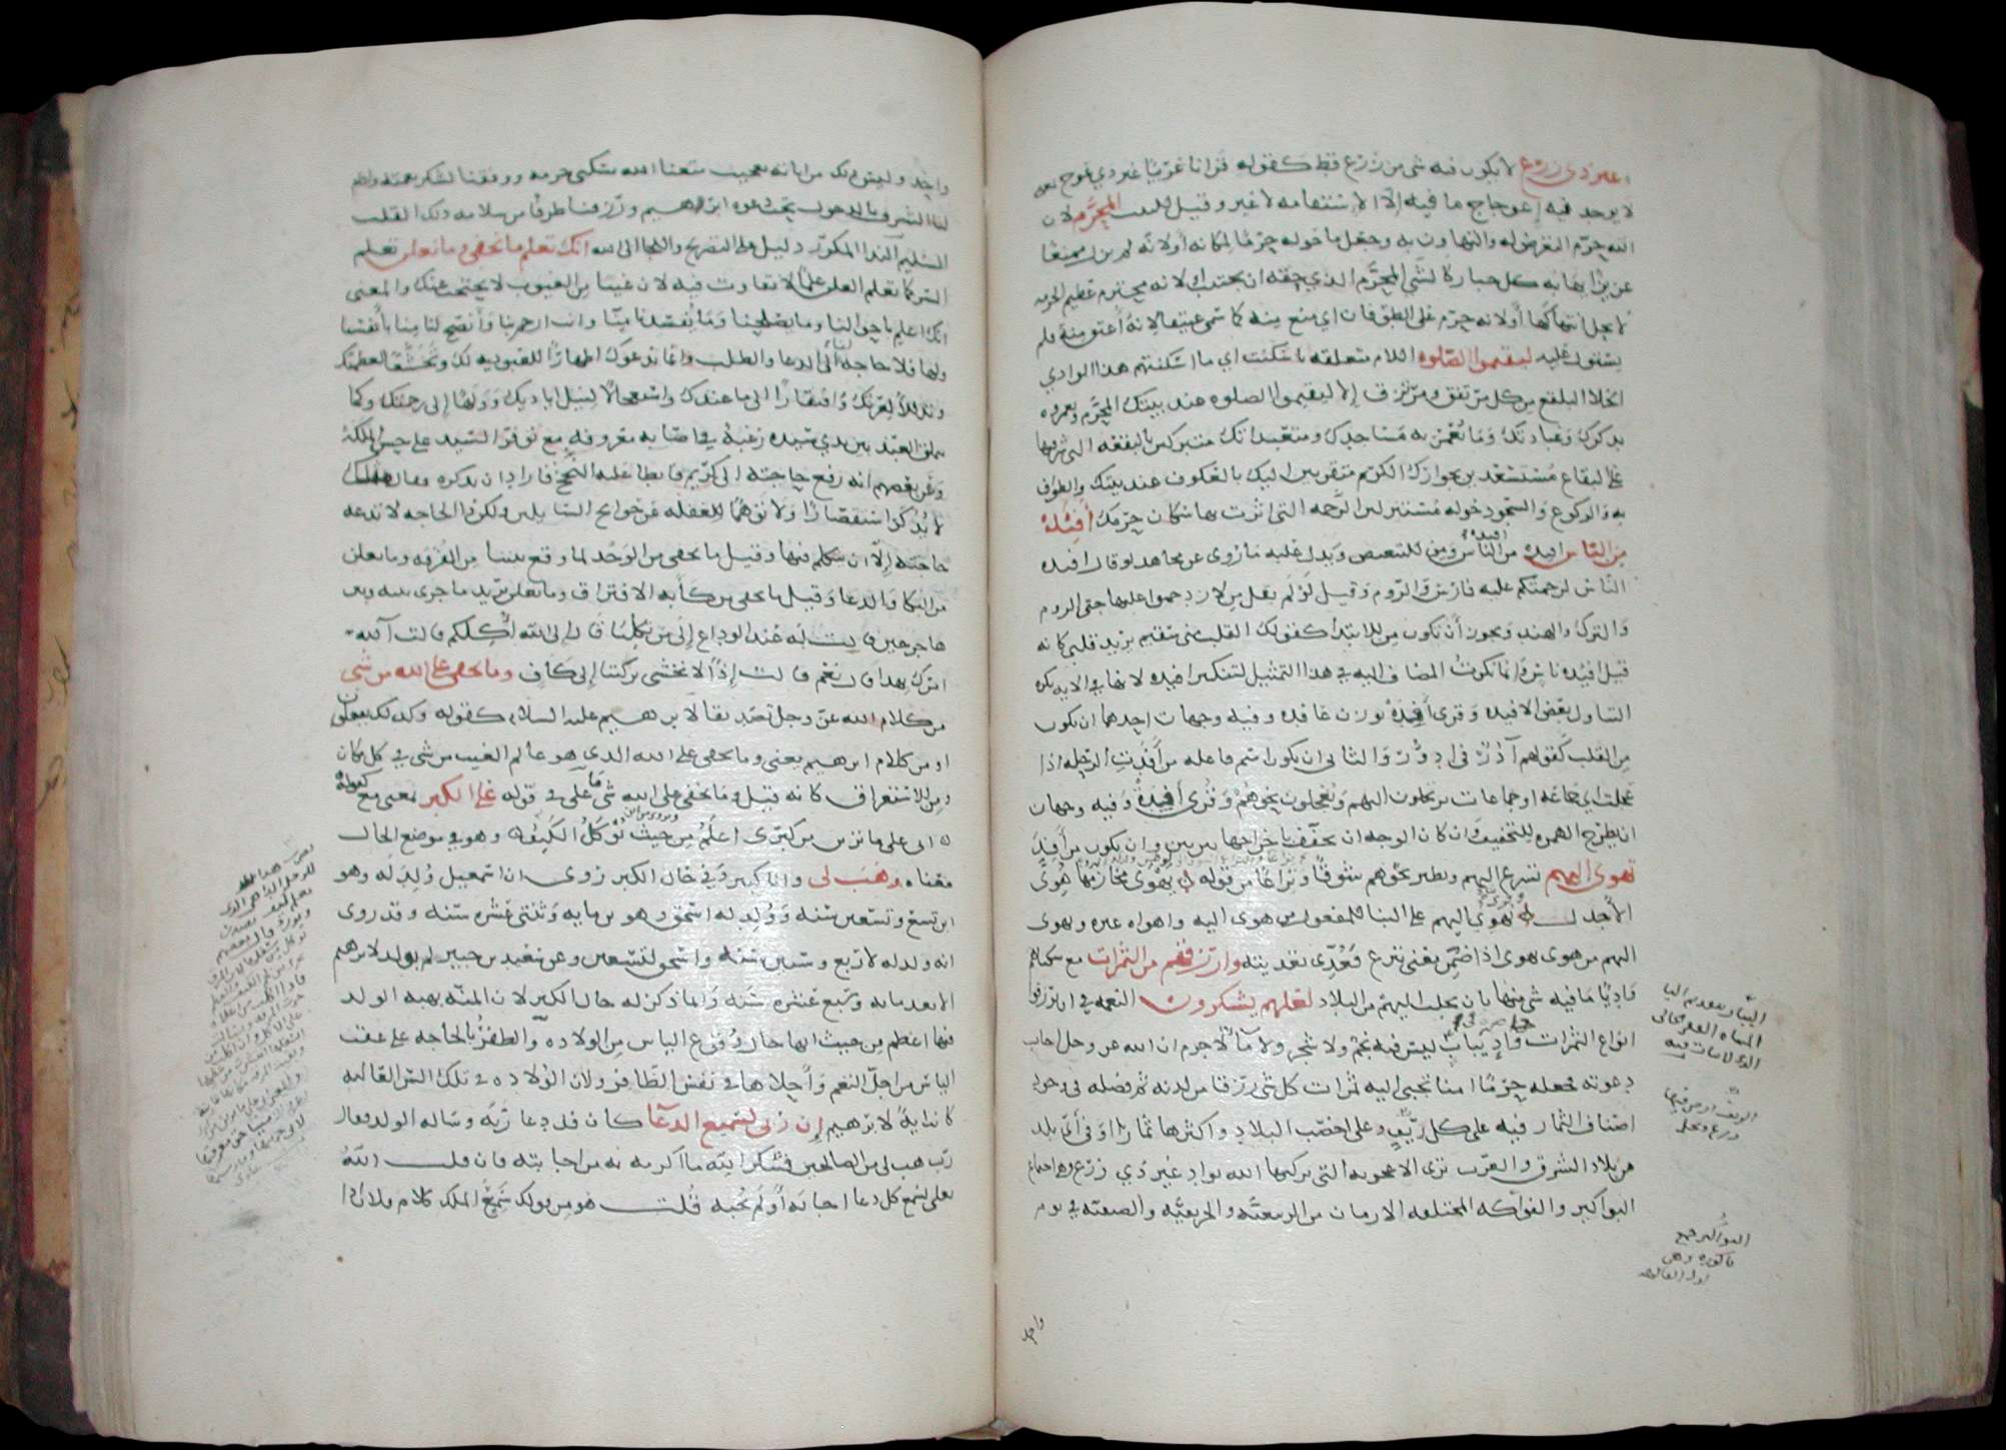 غير ذي زرع لا يكون فيه شى من زرع قط كقوله قرانا عربيا غير ذي عوج بمعنى
لا يوجد فيه إعوجاج ما فيه إلا الاستقامه لا غير وقيل للبيت المحرم لان
الله حرم التعرض له والتهاون به وجعل ما حوله حرما لمكانه أو لانه لم يزل ممنعا
عزيزا يهابه كل جبار كالشي المحرم الذي حقه ان يجتنب او لانه محترم عظيم الحرمه
لا يحل انتهاكها أو لانه حرم على الطوفان اي منع منه كما سمى عتيقا لانه أعتق منه فلم
يستول عليه ليقيموا الصلوه اللام متعلقه باسكنت اي ما اسكنتهم هذا الوادي
الخلا البلقع من كل مرتفق ومرتزق إلا ليقيموا الصلوه عند بيتك المحرم ويعمروه
بذكرك وعبادتك وما تعمر به مساجدك ومتعبداتك متبركين بالبقعه التي شرفتها
على البقاع مستسعدين بجوارك الكريم متقربين اليك بالعكوف عند بيتك والطواف
به والركوع والسجود حوله مستنزلين الرحمه التي اثرت بها سكان حرمك أفئدة
من الناس افيدة من افيدة الناس ومن للتبعيض ويدل عليه ما روى عن مجاهد لو قال افيده
الناس لزحمتكم عليه فارس والروم وقيل لو لم يقل من لازدحموا عليه حتى الروم
والترك والهند ويجوز أن يكون من للابتدا كقولك القلب مني سقيم يريد قلبي كانه
قيل افيده ناس وانما نكرت المضاف اليه في هذا التمثيل لتنكير افيده لانها في الايه نكره
ليتناول بعض الافيده وقرى آفدة بوزن عافده وفيه وجهان احدهما ان يكون
من القلب كقولهم آدر فى ادؤر والثاني ان يكون اسم فاعله من أفدت الرحله اذا
عجلت اي جماعه او جماعات يرتحلون اليهم ويعجلون نحوهم وقرى أفدة وفيه وجهان
ان يطرح الهمزه للتخفيف وان كان الوجه ان يخفف باخراجها بين بين وان يكون من أفد
تهوى اليهم تسرع اليهم وتطير نحوهم شوقا ونزاعا من قوله يهوى مخارمها هوي
الأجدل وقرى تهوى اليهم على البنا للمفعول من هوى اليه واهواه غيره وتهوى
اليهم من هوى يهوى اذا احب ضمن معنى تنزع فعدى تعديته وارزقهم من الثمرات مع سكناهم
واديا ما فيه شى منها بان يجلب اليهم من البلاد لعلهم يشكرون النعمه في ان يرزقوا
انواع الثمرات حاضره في واد يباب ليس فيه نجم ولا شجر ولا ما لا جرم ان الله عز وجل اجاب
دعوته فجعله حرما امنا تجبى اليه ثمرات كل شى رزقا من لدنه ثم فضله في وجود
اصناف الثمار فيه على كل ريف وعلى اخصب البلاد واكثرها ثمارا وفي أي بلد
من بلاد الشرق والغرب ترى الاعجوبه التي يريكها الله بواد غير ذي زرع وهي اجتماع
البواكير والفواكه المختلفه الازمان من الربيعيه والخريفيه والصيفيه في يوم
اليباب بتقديم اليا
البواكير جمع
باكوره وهي
اول الفاكهه
واحد
واحد وليس ذلك من اياته بعجيب متعنا الله بسكنى حرمه ووفقنا لشكر نعمه وادام
لنا الشرف بالدخول تحت دعوه ابراهيم ورزقنا طرفا من سلامه ذلك القلب
السليم النداء المكرر دليل على التضرع واللجا الى الله انك تعلم ما نخفى وما نعلن تعلم
السر كما تعلم العلن علما لا تفاوت فيه لان غيبا من الغيوب لا يحتجب عنك والمعنى
انك اعلم باحوالنا وما يصلحنا وما يفسدنا منا وانت ارحم بنا وأنصح لنا منا بأنفسنا
ولها فلا حاجة لنا الى الدعا والطلب وانما ندعوك اظهارا للعبوديه لك وتخشعا لعظمتك
وتذللا لعزتك وافتقارا الى ما عندك واستعجالا لنيل اياديك وولها إلى رحمتك وكما
يتملق العبد بين يدي سيده رغبة في اصابه معروفه مع توفر السيد على حسن الملكة
وعن بعضهم انه رفع حاجته الى كريم فابطا عليه النجح فاراد ان يذكره فقال مثلك
لا يذكر استقصارا ولا توهما للغفله عن حوايج السايلين ولكن ذا الحاجه لا تدعه
حاجته إلا ان يتكلم فيها وقيل ما نخفى من الوجد لما وقع بيننا من الفرقه وما نعلن
من البكا والدعا وقيل ما نخفى من كآبه الافتراق وما نعلن يريد ما جرى بينه وبين
هاجر حين قالت له عند الوداع إلى من تكلنا قال إلى الله أكلكم قالت آلله
امرك بهذا قال نعم قالت إذا لا نخشى تركتنا إلى كاف وما يخفى على الله من شى
من كلام الله عز وجل تصديقا لابرهيم عليه السلام كقوله وكذلك يفعلون
او من كلام ابرهيم يعني وما يخفى على الله الذي هو عالم الغيب من شى في كل مكان
ومن للاستغراق كانه قيل وما يخفى على الله شى ما على في قوله على الكبر بمعنى مع كقوله
انى على ما ترين من كبرى اعلم من حيث تؤكل الكتف وهو في موضع الحال
معناه وهب لي وانا كبير وفي حال الكبر روى ان اسمعيل ولد له وهو
ابن تسع وتسعين سنه وولد له اسحق وهو بن مايه وثنتى عشره سنه وقد روى
انه ولد له لاربع وستين سنه واسحق لتسعين وعن سعيد بن جبير لم يولد لابرهيم
الا بعد مايه وسبع عشره سنه وانما ذكر له حال الكبر لان المنه بهبه الولد
فيها اعظم من حيث انها حال وقوع الياس من الولاده والظفر بالحاجه على عقب
الياس من اجل النعم وأحلاها في نفس الظافر ولان الولاده في تلك السن العاليه
كانت اية لابرهيم إن ربى لسميع الدعا كان قد دعا ربه وساله الولد فقال
رب هب لي من الصالحين فشكر لله ما اكرمه به من اجابته فان قلت الله
تعلى يسمع كل دعا اجابه أو لم يجبه قلت هو من قولك سمع الملك كلام فلان إذا